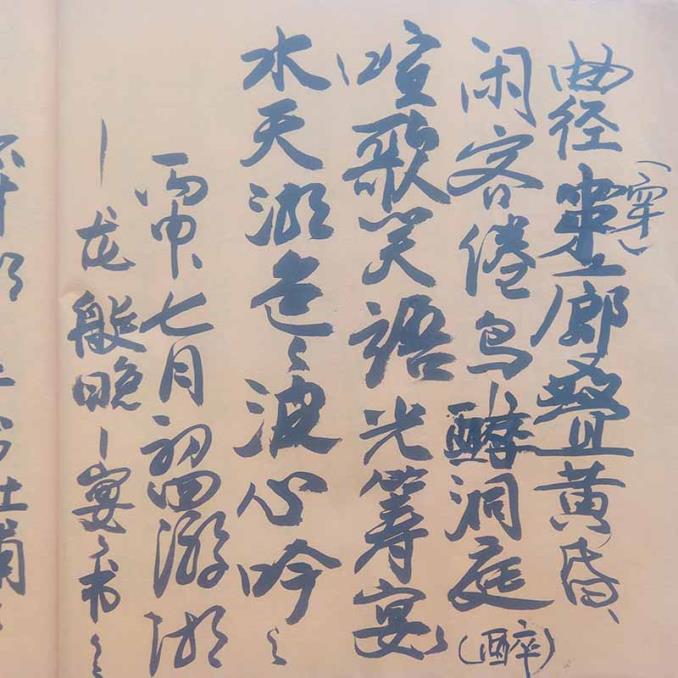 (穿)
曲径廊叠黄昏、
闲客倦鸟洞庭(醉)
喧歌笑语光筹宴
水天湖色、波心吟、
丙申七月初四游湖
龙般晚宴、书、